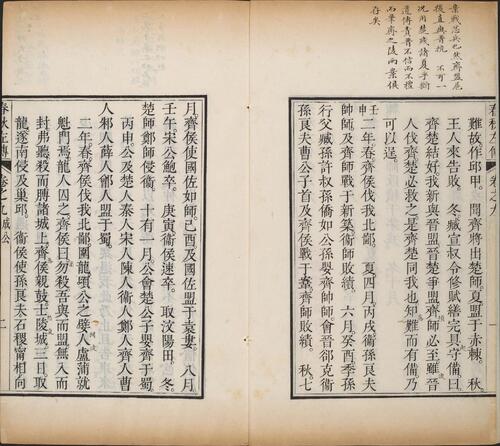 案戰
春秋左傳
難故作邱甲。聞齊將出楚師夏盟于赤棘。秋
王人來告敗。冬臧宣叔令修賦繕完具守備曰
齊楚結好我新與晉盟晉楚爭盟齊師必至雖晉
人伐齊楚必救之是齊楚同我也知難而有備乃
可以逞。
壬申
二年春齊侯伐我北鄙。夏四月丙戌衞孫良夫
帥師及齊師戰于新築衞師敗績。六月癸酉季孫
行父臧孫許叔孫僑如公孫嬰齊帥師會晉郤克衞
孫良夫曹公子首及齊侯戰于鞌齊師敗績。秋七
月齊侯使國佐如師己酉及國佐盟于袁婁。八月
壬午宋公鮑卒。庚寅衞侯速卒。取汶陽田。冬
楚師鄭師侵衞。十有一月公會楚公子嬰齊于蜀
丙申公及楚人秦人宋人陳人衞人鄭人齊人曹
人邾人薛人鄫人盟于蜀。
二年春齊侯伐我北鄙圍龍頃公之嬖人盧蒲就
魁門焉龍人囚之齊侯曰勿殺吾與而盟無入而
封弗聽殺而膊諸城上齊侯親鼓士陵城三日取
龍遂南侵及巢邱。衞侯使孫良夫石稷甯相向
春秋左傳
卷之九
成公
二